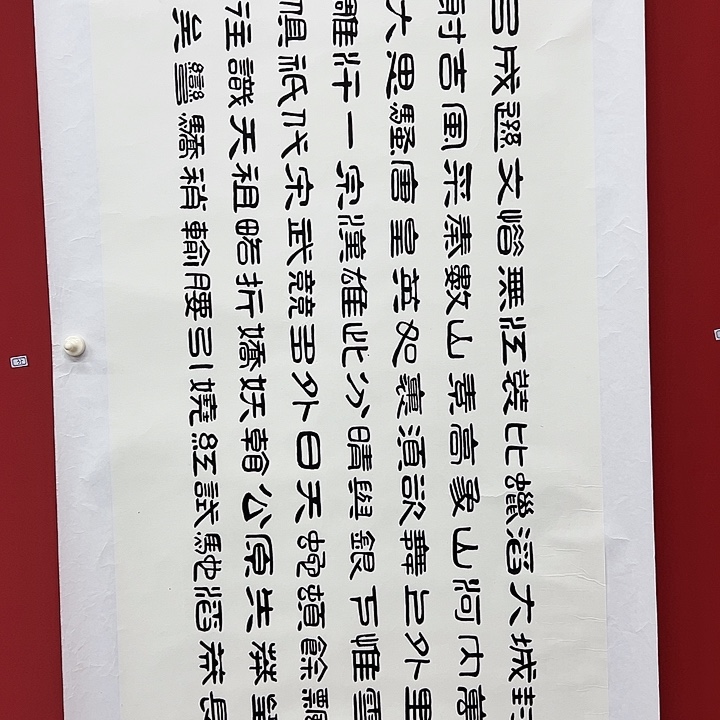 封萬里雪飄望長
城內外惟餘莽莽
大河上下頓失滔
滔山舞銀蛇原馳
蠟象欲與天公試
比高須晴日看紅
裝素裹分外妖嬈
江山如此多嬌引
無數英雄競折腰
惜秦皇漢武略輸
文采唐宗宋祖稍
遜風騷一代天驕
成吉思汗祇識彎
弓射大雕俱往矣